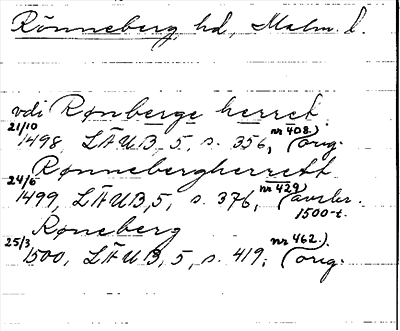 Rönneberg hd, Malm. l.
vdi Rønberge herret
21/10 1498, LÄUB, 5, s. 356, nr 408.) (orig.
Rønnebergherrett
24/6 1499, LÄUB, 5, s. 376, nr 429) (avskr. 1500-t.
Røneberg
25/3 1500, LÄUB, 5, s. 419, nr 462.) (orig.